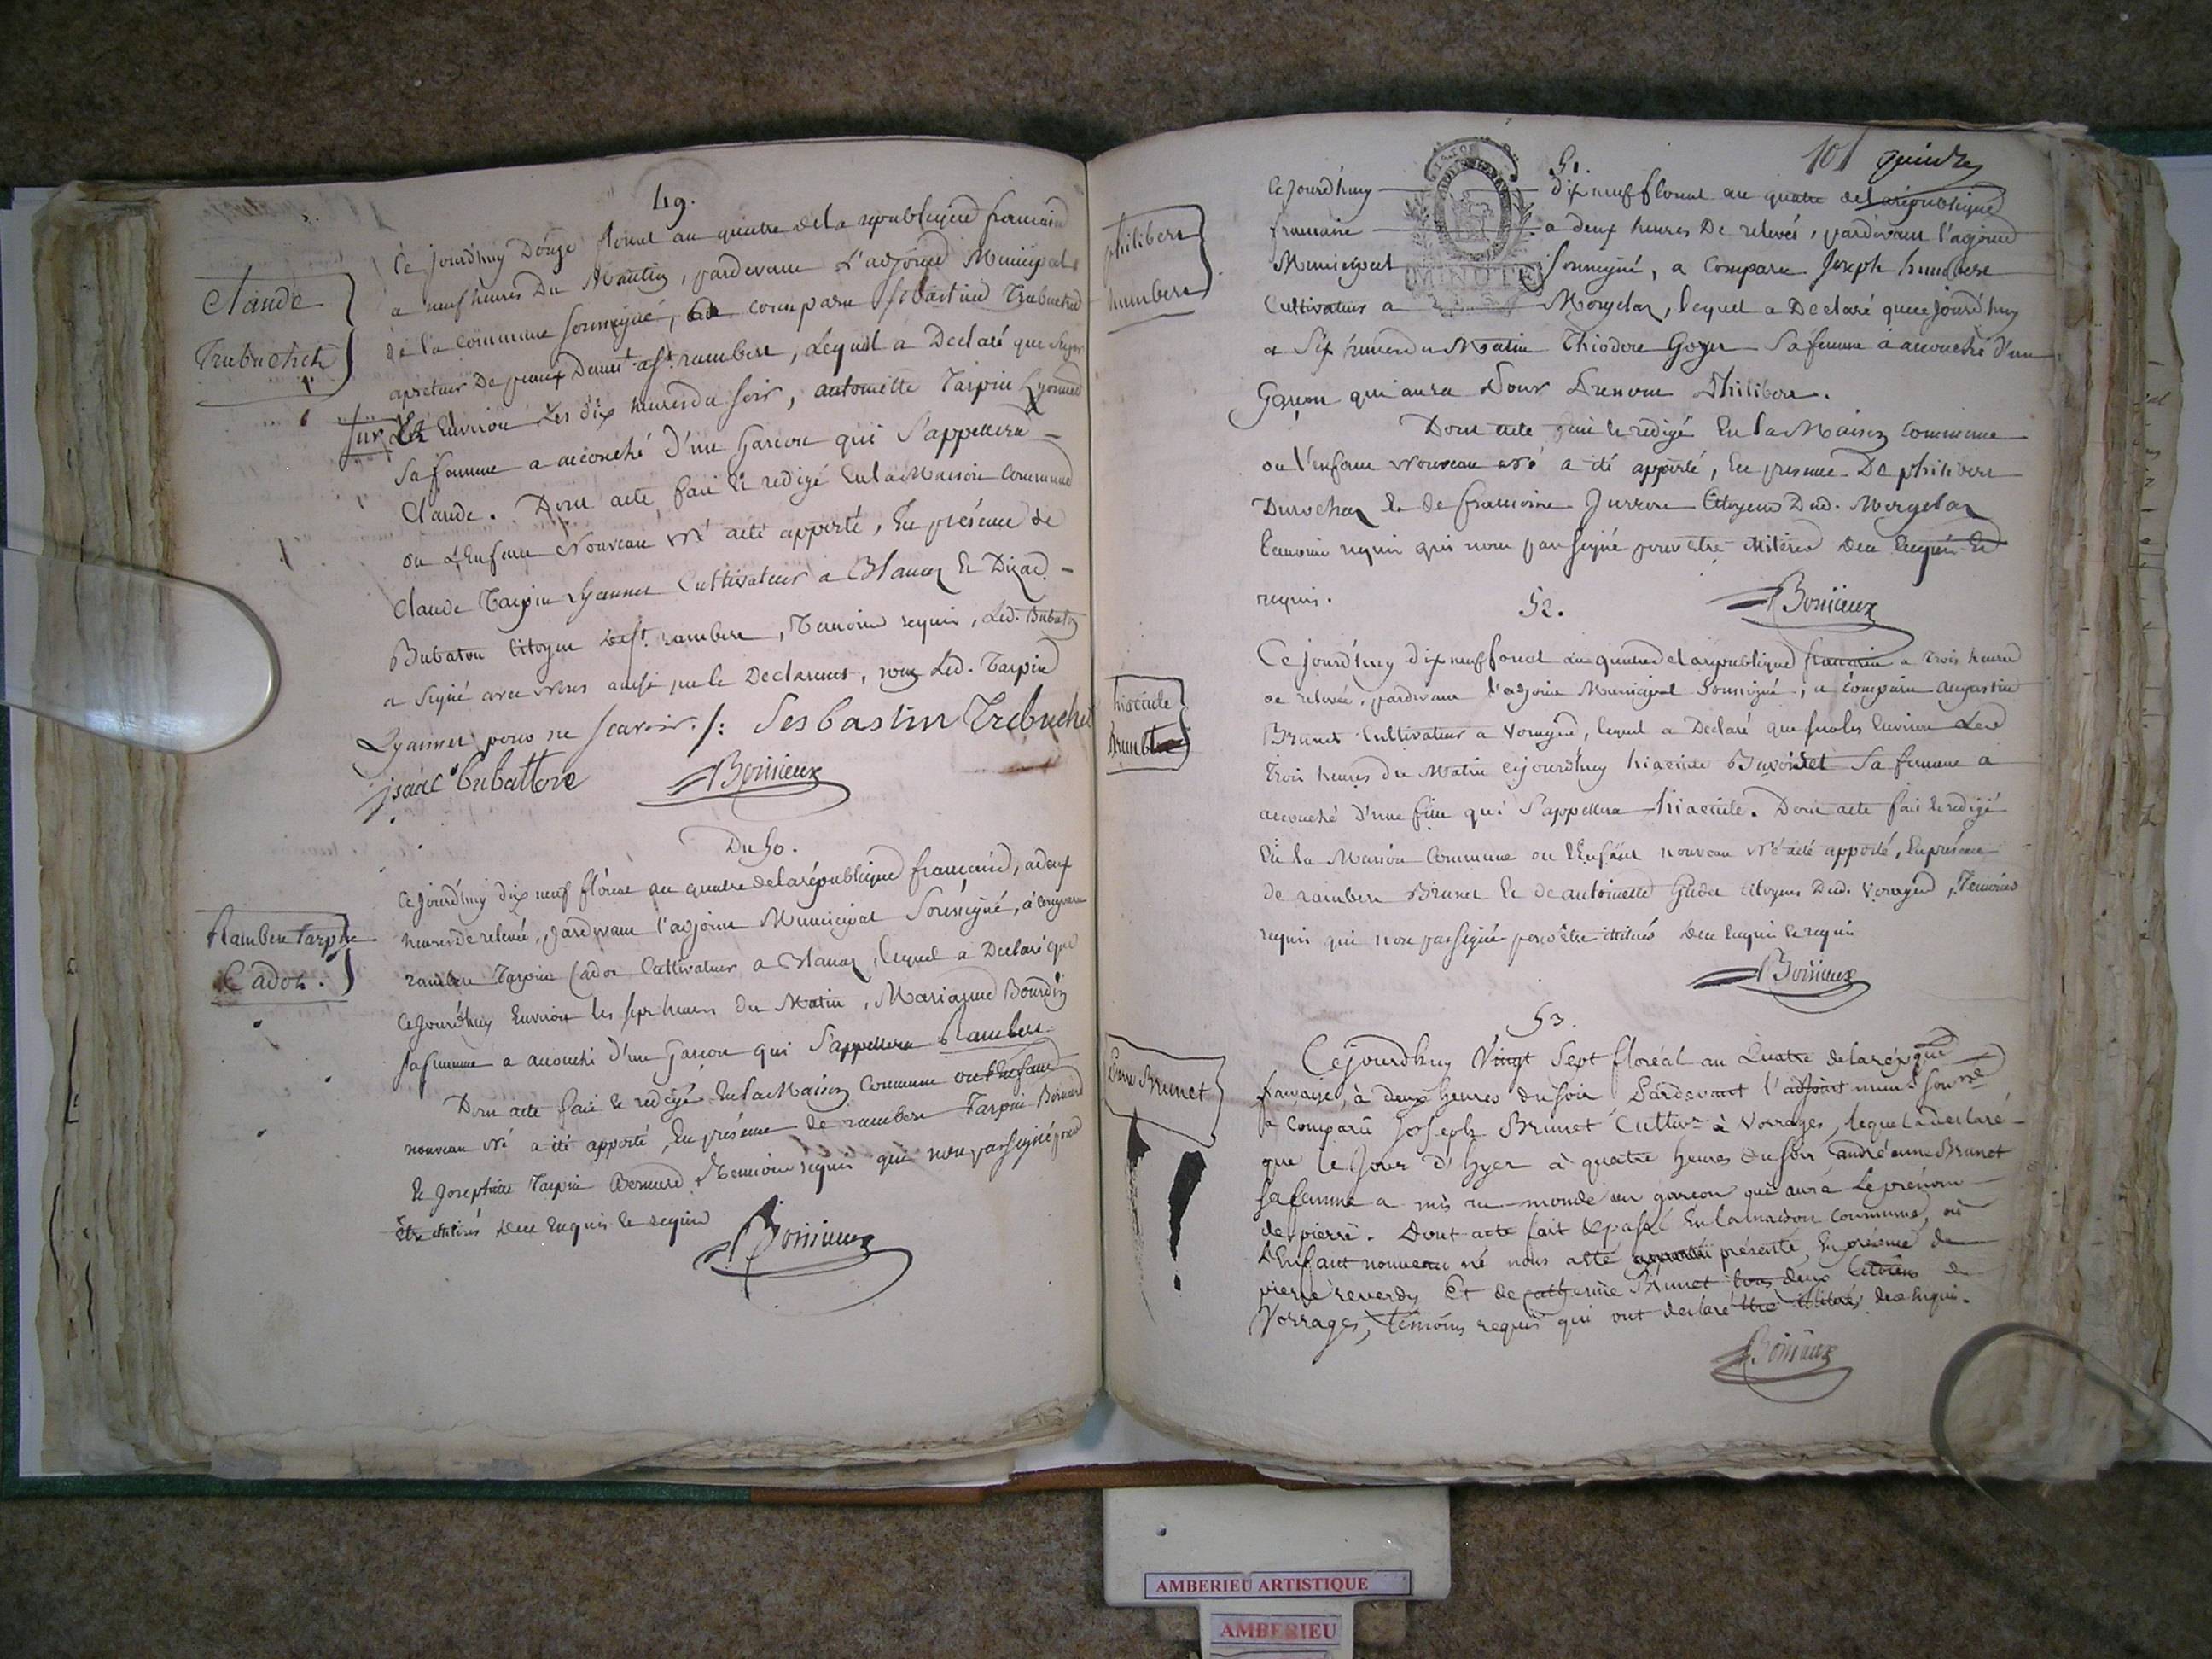 49.
Claude
Trebuchet
Ce jourd'huy Douze floreal an quatre de la republique francaise
a neuf heures du Matin, pardevant L'adjoint Municipal
de la commune soussigné, a comparu sebastien Trebuchet
apretur De peaux Demt a st. rambert, Lequel a Declaré que
sur Les Environ Les dix heures du soir, antoinette Tarpin Lyonnet
sa femme a accouché d'un Garcon qui S'appellera
Claude. Dont acte fait et redigé En la Maison Commune
ou L'Enfant Nouveau né a eté apporté, En présence de
Claude Tarpin Lyannet Cultivateur a Blanaz et Dizac
Bubaton Citoyen de st. rambert, Temoins requis, Led. Bubaton
a signé avec Nous ainsi que le Declarant, non Led. Tarpin
Lyannet pour ne scavoir. /: Sesbastin Trebuchet
jsaac bubattone Bonieux
Du 50.
Rambert Tarpin
Cadot.
Ce jourd'huy dix neuf floreal an quatre de la république francaise, a deux
heures de relevée, pardevant l'adjoint Municipal Soussigné, a comparu
rambert Tarpin Cador Cultivateur a Blanaz, lequel a Declaré que
Cejourd'huy Environ les sept heures du Matin, Marianne Bourdin
sa femme a accouché d'un Garcon qui S'appellera Rambert
Dont acte fait et redigé En la Maison Commune ou l'Enfant
nouveau né a été apporté, En présence de rambert Tarpin Bernard
et Josephte Tarpin Bernard, Temoins requis qui n'ont pas signé pour
être illitérés De ce Enquis et requis
Bonieux
101
51.
philibert
humbert
Ce jourd'huy dix neuf floreal an quatre de la republique
francaise a deux heures De relevée, pardevant l'adjoint
Municipal Soussigné, a Comparu Joseph humbert
MINUTE
Cultivateur a Morgelaz, lequel a Declaré que ce jourd'huy
a Six heures du Matin Thiodore Goyer Sa femme a accouché d'un
Garcon qui aura Pour Prenom Philibert.
Dont acte fait et redigé En la Maison Commune
ou l'enfant Nouveau né a été apporté, En presence De philibert
Durochaz et de francoise Juvron Citoyens Dud. Morgelaz
temoins requis qui n'ont pas signé pour être illitérés De ce Enquis et
requis. Bonieux
52.
hiacinte
Brunet
Ce jourd'huy dix neuf floreal an quatre de la republique francaise a trois heures
de relevée, pardevant l'adjoint Municipal Soussigné, a comparu augustin
Brunet Cultivateur a Vorages, lequel a Declaré que sur les Environ Les
trois heures du Matin cejourd'huy hiacinte Buvordet Sa femme a
accouché d'une fille qui S'appellera hiacinte. Dont acte fait et redigé
En la Maison Commune ou l'Enfant nouveau né a eté apporté, En présence
de rambert Brunet et de antoinette Gudet citoyens Dud. Vorages, Temoins
requis qui n'ont pas signé pour être illitérés De ce Enquis et requis
Bonieux
53.
pierre Brunet
Ce jourd'huy Vingt Sept floréal an Quatre de la répque
française, à deux heures du soir Pardevant l'adjoint munal sousné
a Comparu Joseph Brunet Cultivr à Vorrages, lequel a declaré
que le Jour d'hyer à quatre heures du soir andréanne Brunet
sa femme a mis au monde un garcon qui aura Le prénom
de pierre. Dont acte fait & passé En la maison Commune, où
L'Enfant nouveau né nous a eté apporté présenté, En presence de
pierre reverdy Et de Catherine Brunet tous deux Citoiens de
Vorrages, témoins requis qui ont declaré être illitérés de ce Enquis.
Bonieux
AMBERIEU ARTISTIQUE
AMBERIEU